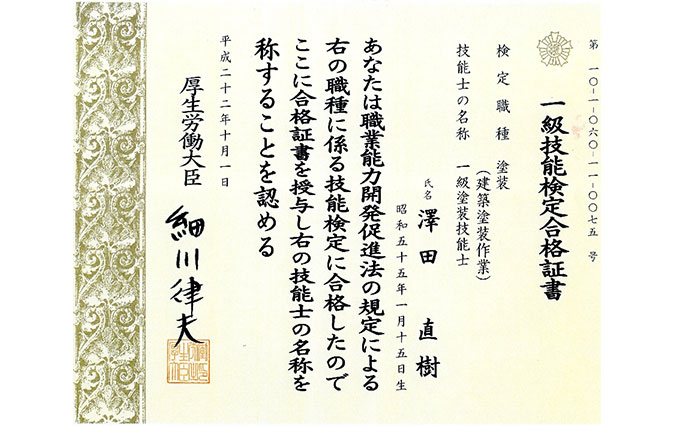 第 一〇-一-〇六〇-一一-〇〇七五 号
一級技能検定合格証書
検定職種 塗装
(建築塗装作業)
技能士の名称 一級塗装技能士
氏名 澤田 直樹
昭和五十五年一月十五日生
あなたは職業能力開発促進法の規定による
右の職種に係る技能検定に合格したので
ここに合格証書を授与し右の技能士の名称を
称することを認める
平成二十二年十月一日
厚生労働大臣 細川律夫